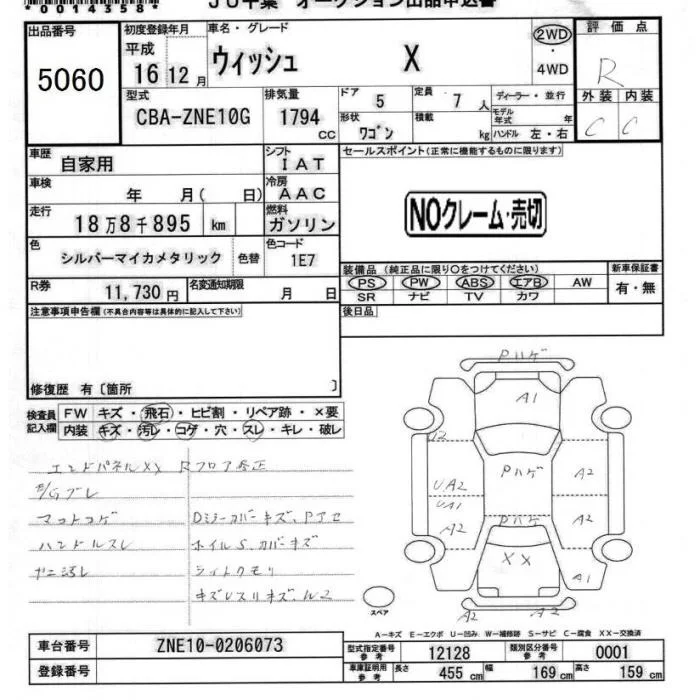 *0014358*
JU千葉 オークション出品申込書
出品番号
5060
初度登録年月
平成
16 12 月
車名・グレード
ウィッシュ X
2WD
・
4WD
評価点
R
型式
CBA-ZNE10G
排気量
1794
cc
ドア
5
定員
7 人
ディーラー・並行
モデル年式 年
外装 内装
C C
形状
ワゴン
積載
kg
ハンドル 左・右
車歴
自家用
シフト
IAT
セールスポイント(正常に機能するものに限ります)
車検
年 月( 日)
冷房
AAC
NOクレーム・売切
走行
18万8千895 km
燃料
ガソリン
色
シルバーマイカメタリック
色替
色コード
1E7
装備品 (純正品に限り○をつけてください)
新車保証書
PS PW ABS エアB AW
有・無
SR ナビ TV カワ
R券
11,730 円
名変通知期限
月 日
後日品
注意事項申告欄 (不具合内容等は具体的に記入して下さい)
修復歴 有〔箇所 〕
検査員記入欄
FW キズ・飛石・ヒビ割・リペア跡・×要
内装 キズ・汚レ・コゲ・穴・スレ・キレ・破レ
エンドパネルXX Rフロア修正
マットコゲ
ハンドルスレ
ヤニ汚レ
ホイルS、カバーキズ
シートクモリ
Pハゲ
A1
A2
UA2
UA1
A2
Pハゲ
A2
A2
Pハゲ
XX
A1
A2
A2
スペア
A-キズ E-エクボ U-凹み W-補修跡 S-サビ C-腐食 XX-交換済
車台番号
ZNE10-0206073
型式指定番号
参考
12128
類別区分番号
参考
0001
登録番号
車庫証明用
参考
長さ
455 cm
幅
169 cm
高さ
159 cm